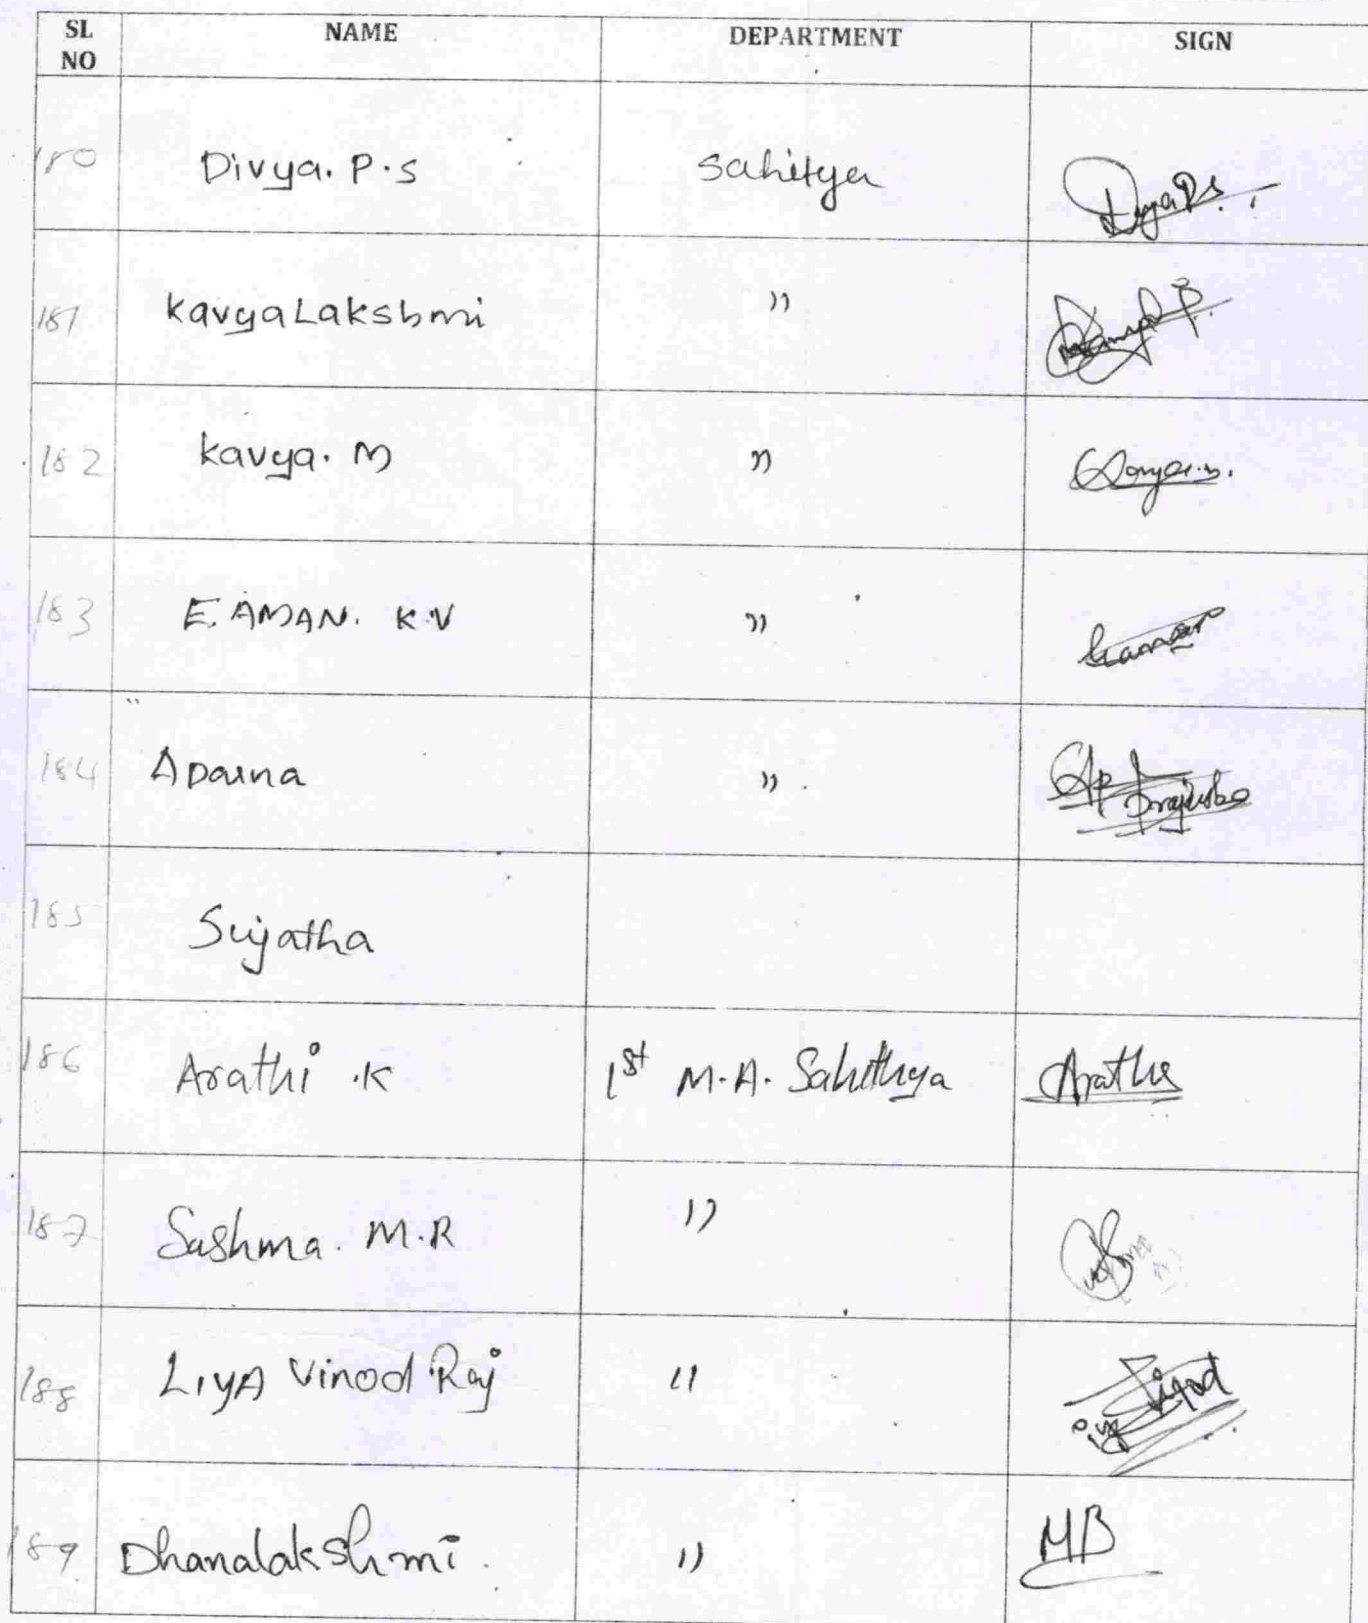 SL NO NAME DEPARTMENT SIGN
180 Divya. P.S Sahitya Divya P.S.
181 KavyaLakshmi ,,
182 Kavya. M ,, Kavya.m.
183 E. AMAN. K.V ,,
184 Aparna ,,
185 Sujatha
186 Arathi .K 1st M.A. Sahithya Arathi
187 Sushma. M.R ,,
188 LIYA Vinod Raj ,,
189 Dhanalakshmi. ,, MB